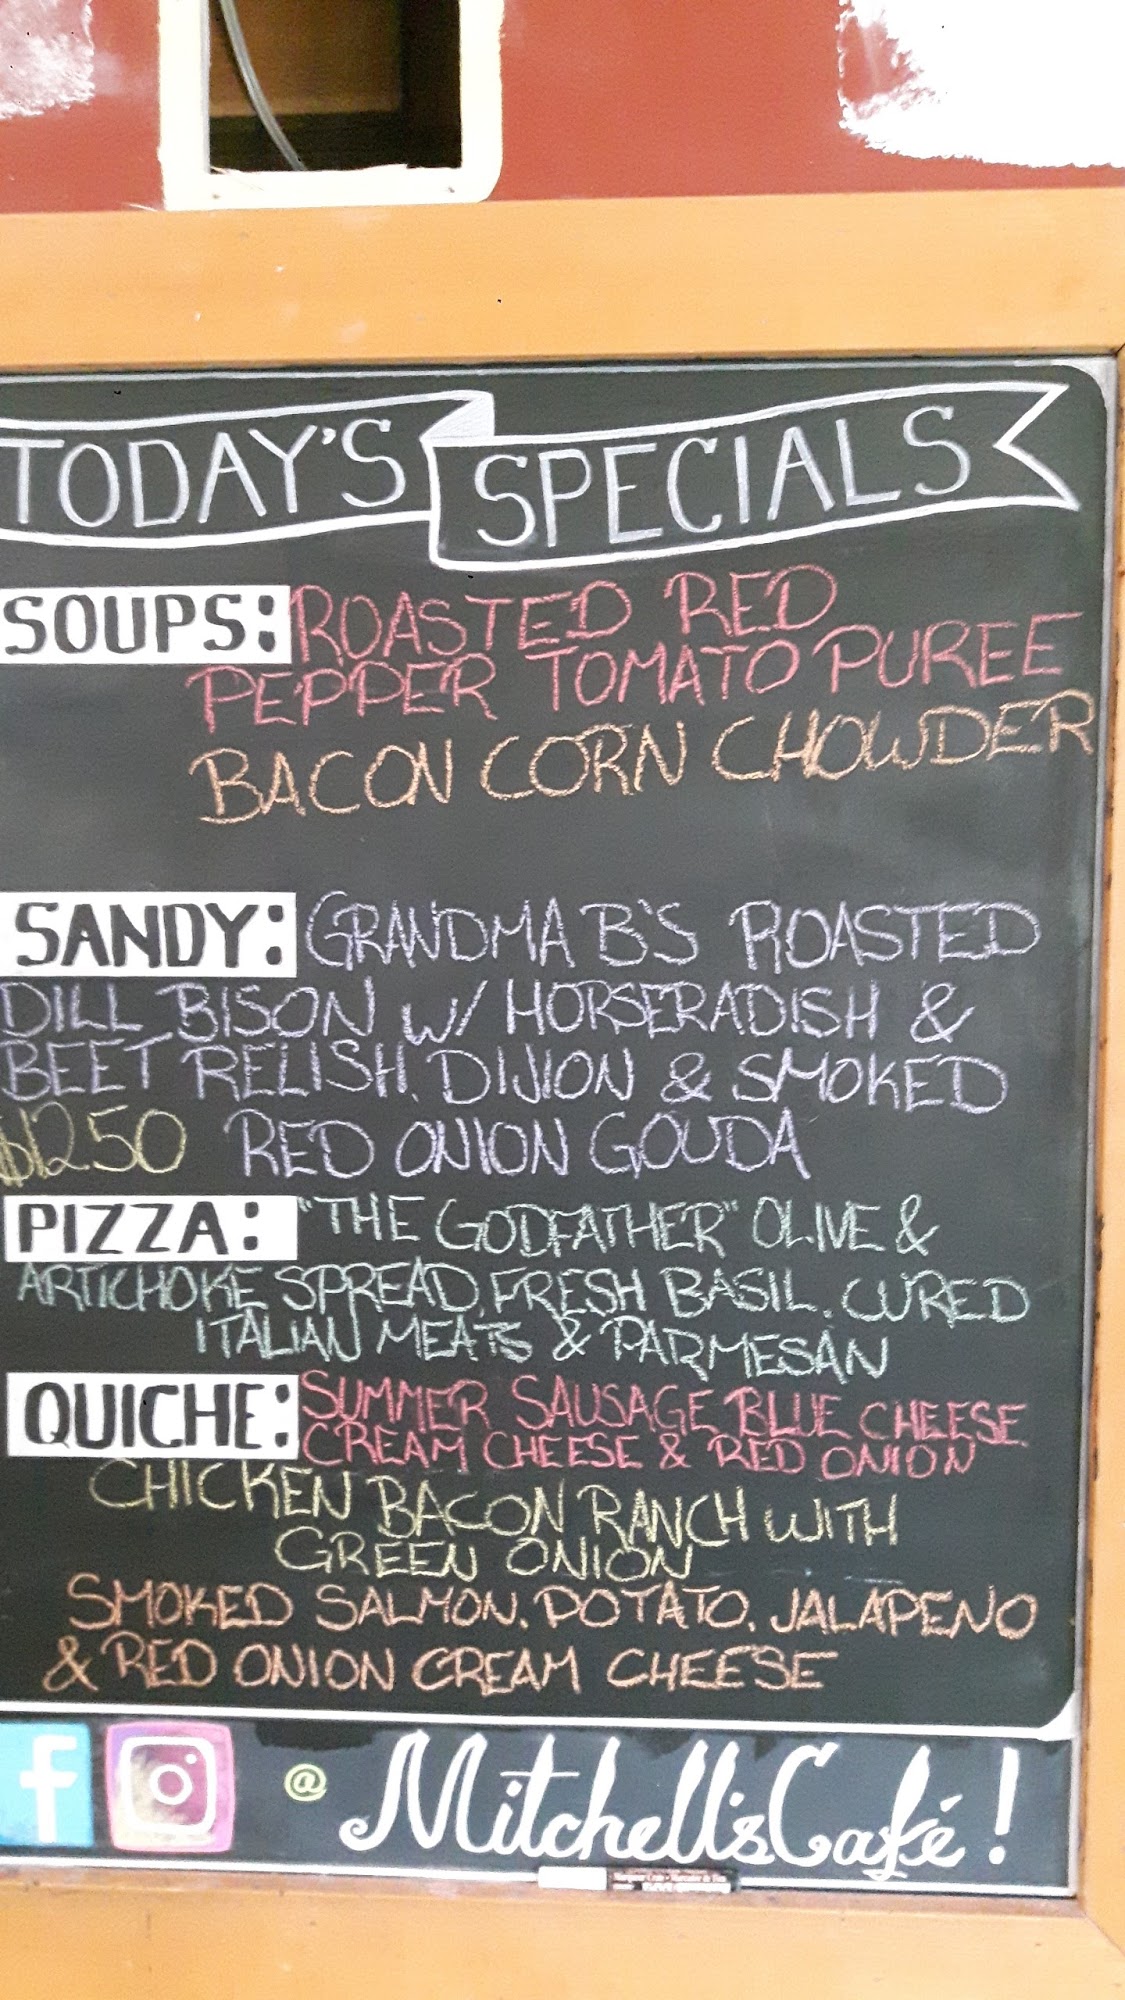 TODAY'S SPECIALS
SOUPS: ROASTED RED
PEPPER TOMATO PUREE
BACON CORN CHOWDER
SANDY: GRANDMA B'S ROASTED
DILL BISON W/ HORSERADISH &
BEET RELISH, DIJION & SMOKED
$12.50 RED ONION GOUDA
PIZZA: "THE GODFATHER" OLIVE &
ARTICHOKE SPREAD, FRESH BASIL, CURED
ITALIAN MEATS & PARMESAN
QUICHE: SUMMER SAUSAGE, BLUE CHEESE,
CREAM CHEESE & RED ONION
CHICKEN BACON RANCH WITH
GREEN ONION
SMOKED SALMON, POTATO, JALAPENO
& RED ONION CREAM CHEESE
f @ Mitchell'sCafé!